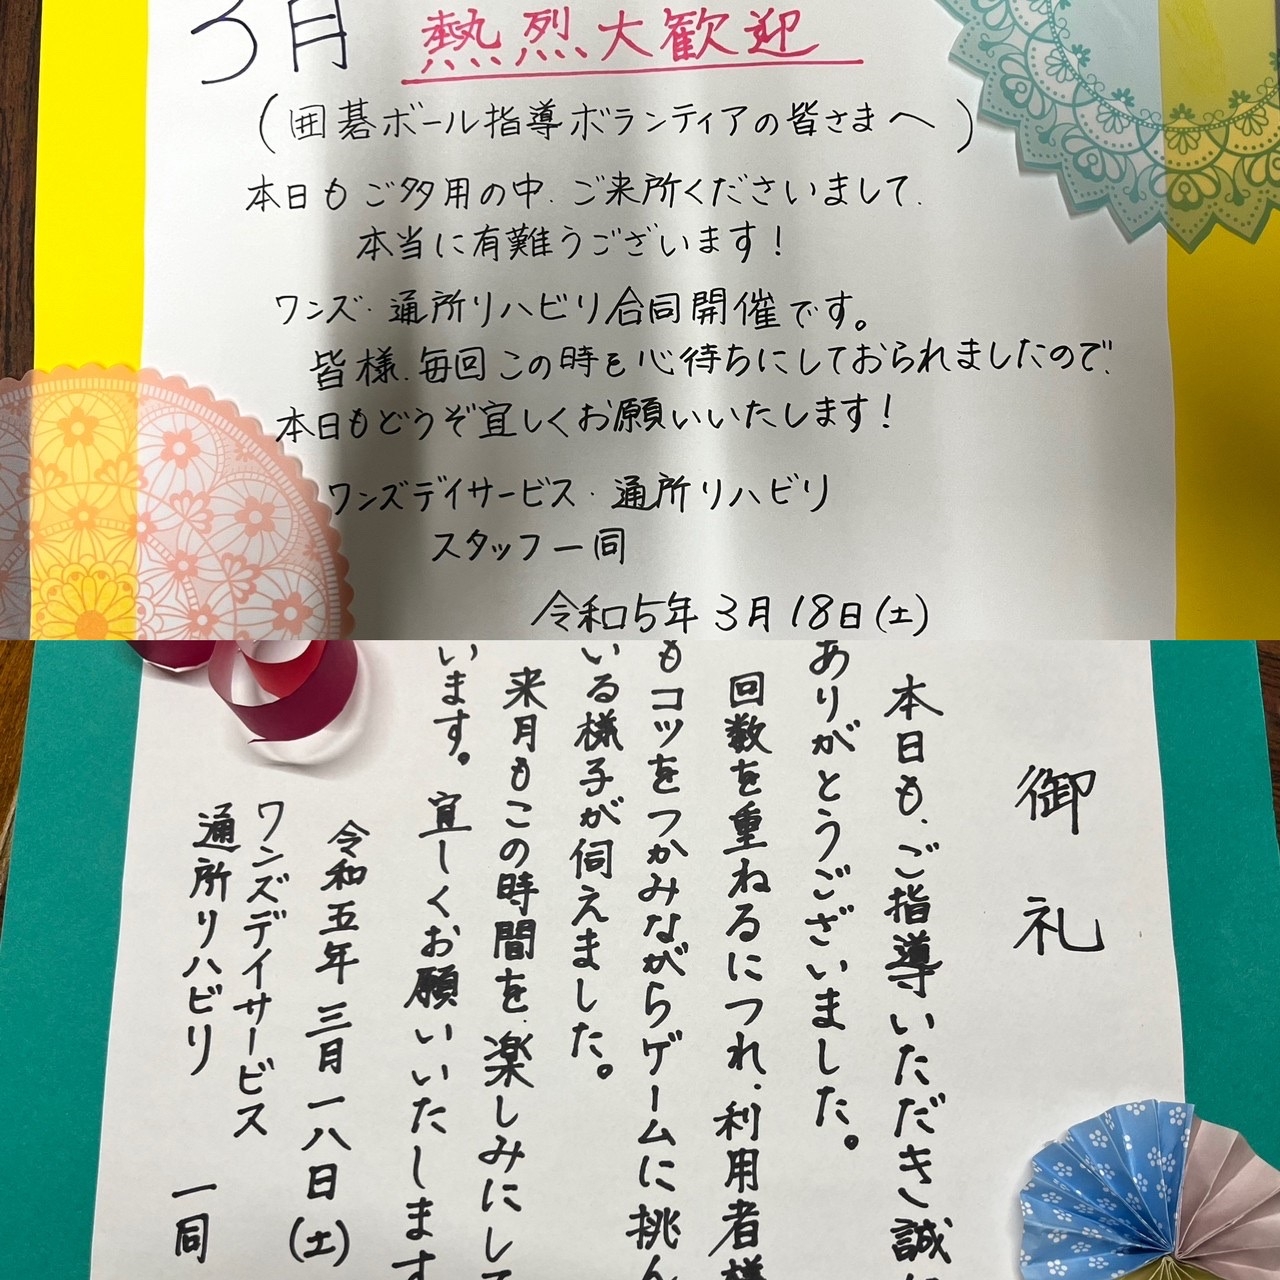 3月 熱烈大歓迎
(囲碁ボール指導ボランティアの皆さまへ)
本日もご多用の中、ご来所くださいまして、
本当に有難うございます!
ワンズ・通所リハビリ合同開催です。
皆様、毎回この時を心待ちにしておられましたので、
本日もどうぞ宜しくお願いいたします!
ワンズデイサービス・通所リハビリ
スタッフ一同
令和5年3月18日(土)
御礼
本日も、ご指導いただき誠に
ありがとうございました。
回数を重ねるにつれ、利用者様
もコツをつかみながらゲームに挑ん
いる様子が伺えました。
来月もこの時間を、楽しみにして
います。宜しくお願いいたします
令和五年三月一八日(土)
ワンズデイサービス
通所リハビリ 一同